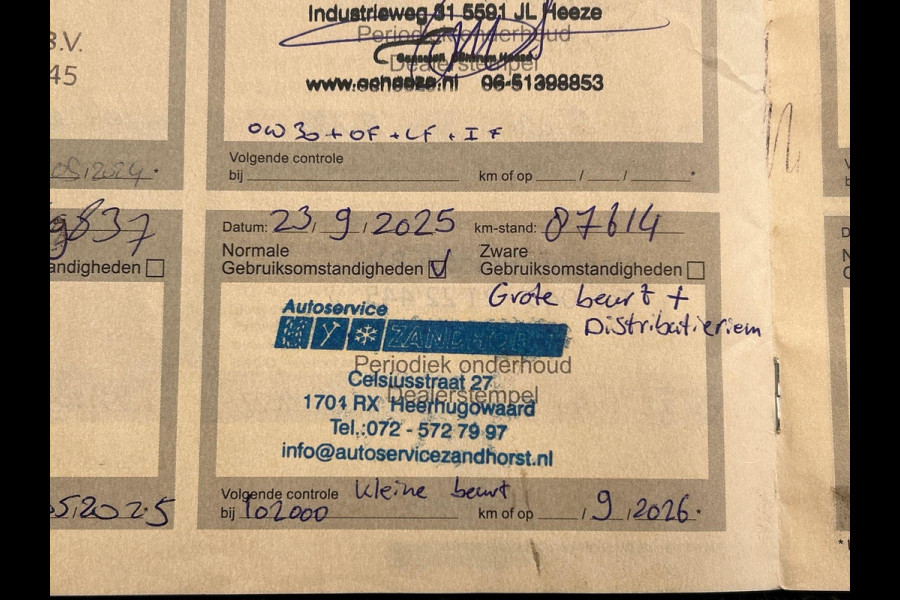 B.V.
45
05/2024.
9837
andigheden
5/2025
Industrieweg 31 5591 JL Heeze
Periodiek onderhoud
Dealerstempel
www.acheeze.nl 06-51398853
0W30 + OF + LF + IF
Volgende controle
bij km of op / / *
Datum: 23/9/2025 km-stand: 87614
Normale Zware
Gebruiksomstandigheden Gebruiksomstandigheden
Grote beurt +
Distributieriem
Autoservice
ZANDHORST
Periodiek onderhoud
Celsiusstraat 27
Dealerstempel
1704 RX Heerhugowaard
Tel.:072 - 572 79 97
info@autoservicezandhorst.nl
Volgende controle Kleine beurt
bij 102000 km of op / 9 / 2026.